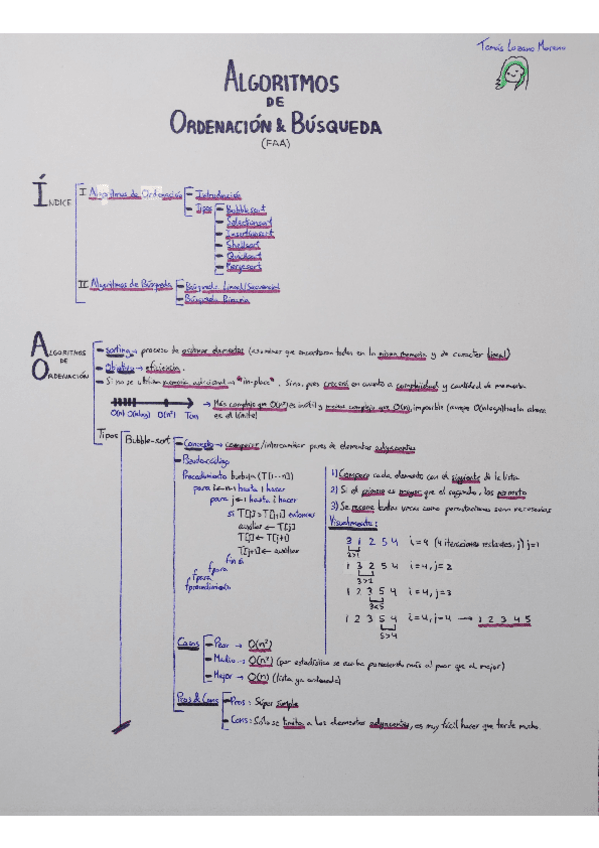 Tomás Lozano Moreno
ALGORITMOS
DE
ORDENACIÓN & BÚSQUEDA
(FAA)
ÍNDICE
I Algoritmos de Ordenación
Introducción
Tipos
Bubble sort
Selection sort
Insertion sort
Shellsort
Quicksort
Mergesort
II Algoritmos de Búsqueda
Búsqueda Lineal/Secuencial
Búsqueda Binaria
ALGORITMOS
DE
ORDENACIÓN
sorting → proceso de elementos (asumimos que encontramos todos en la misma memoria y de caracter lineal)
Objetivo → eficiencia.
Si no se utiliza memoria adicional → "in-place". Sino, pues crecerá en cuanto a complejidad y cantidad de memoria.
O(n) O(nlogn) O(n²) Tam
→ Más complejo que O(n²) es inútil y menos complejo que O(n), imposible (aunque O(nlogn) hasta ahora
es el límite)
Tipos
Bubble-sort
Concepto → comparar/intercambiar pares de elementos adyacentes
Pseudocódigo
Procedimiento burbuja (T[1··n])
para i←n-1 hasta 1 hacer
para j←1 hasta i hacer
si T[j] > T[j+1] entonces
auxiliar ← T[j]
T[j] ← T[j+1]
T[j+1] ← auxiliar
fin si
fpara
fpara
fprocedimiento
1) Compara cada elemento con el siguiente de la lista
2) Si el primero es mayor que el segundo, los permuta
3) Se recorre tantas veces como permutaciones sean necesarias
Visualmente:
3 1 2 5 4 i=4 (4 iteraciones restantes, j) j=1
3>1
1 3 2 5 4 i=4, j=2
3>2
1 2 3 5 4 i=4, j=3
3<5
1 2 3 5 4 i=4, j=4 → 1 2 3 4 5
5>4
Casos
Peor → O(n²)
Medio → O(n²) (por estadística se acaba pareciendo más al peor que al mejor)
Mejor → O(n) (lista ya ordenada)
Pros & Cons
Pros: Súper simple
Cons: Sólo se limita a los elementos adyacentes, es muy fácil hacer que tarde mucho.